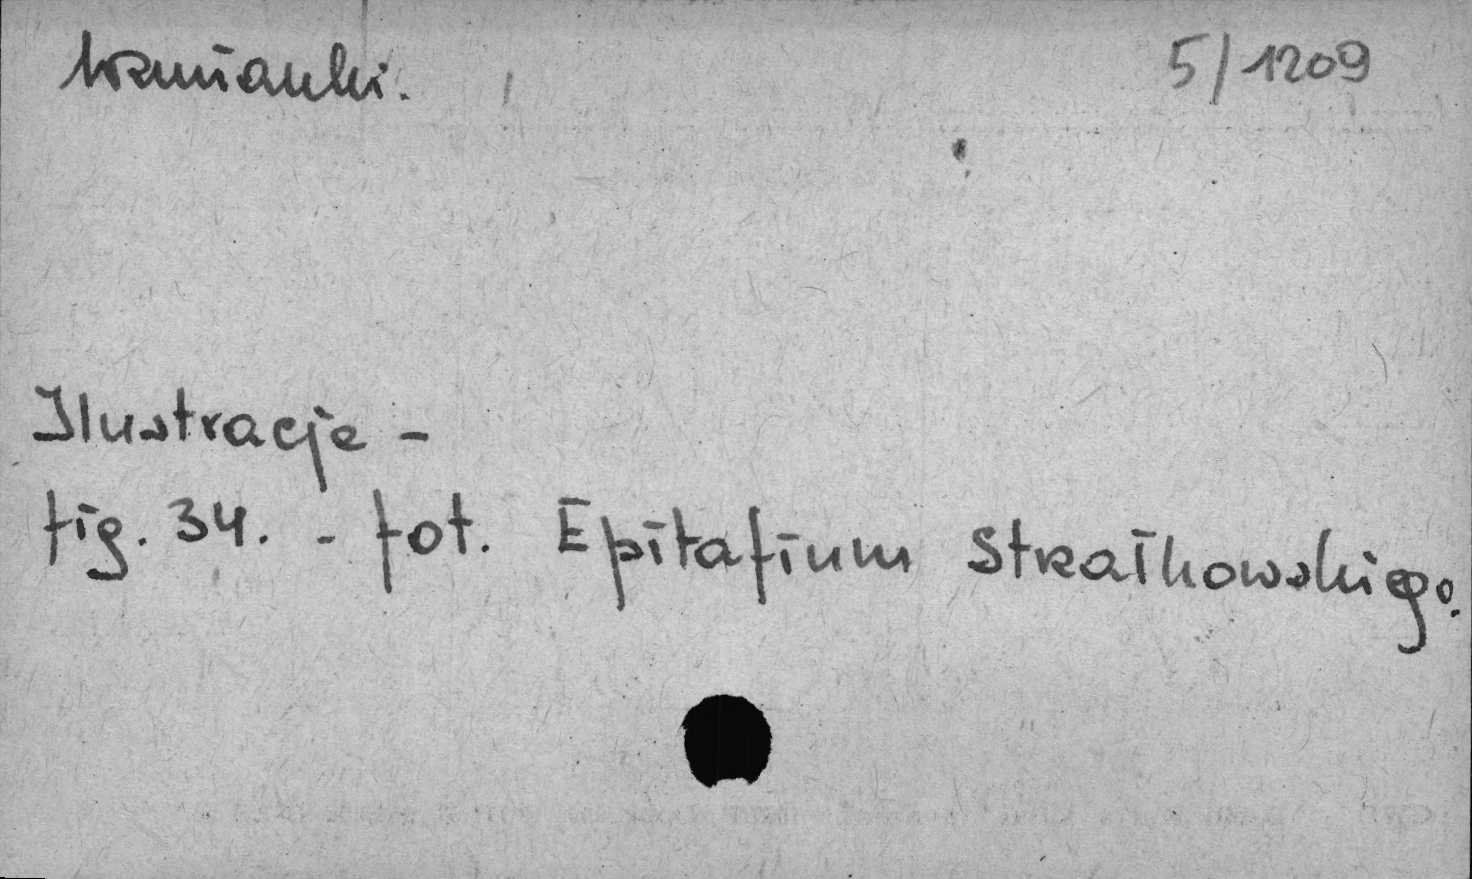 Wzmianki. 5/1209
Ilustracje -
fig. 34. - fot. Epitafium Strzałkowskiego.